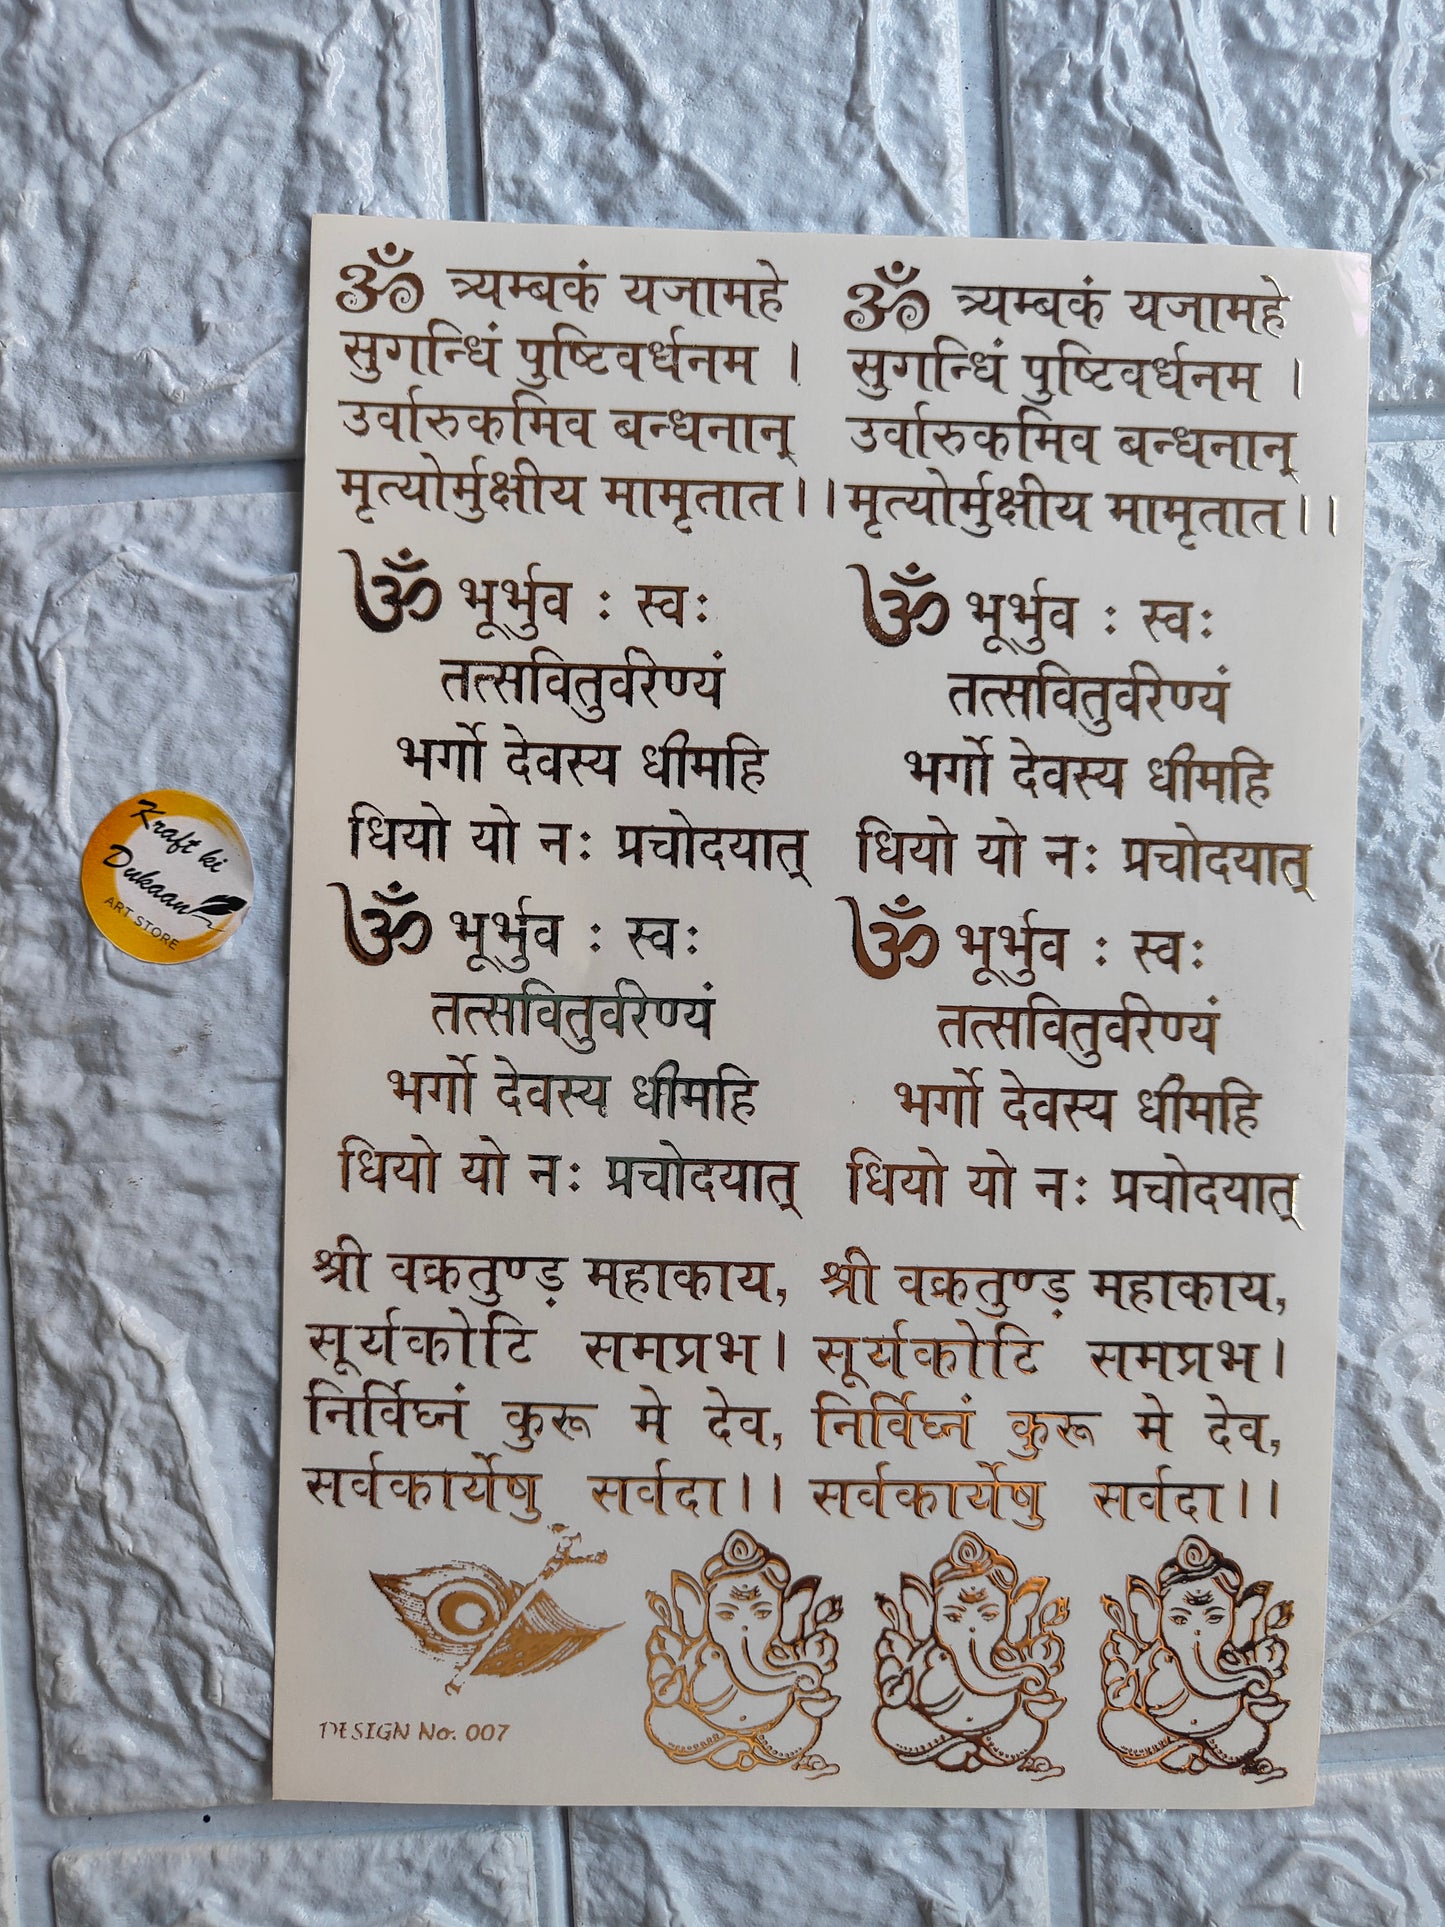 ॐ त्र्यम्बकं यजामहे
सुगन्धिं पुष्टिवर्धनम ।
उर्वारुकमिव बन्धनान्
मृत्योर्मुक्षीय मामृतात।।
ॐ त्र्यम्बकं यजामहे
सुगन्धिं पुष्टिवर्धनम ।
उर्वारुकमिव बन्धनान्
मृत्योर्मुक्षीय मामृतात।।
ॐ भूर्भुव : स्व:
तत्सवितुर्वरेण्यं
भर्गो देवस्य धीमहि
धियो यो न: प्रचोदयात्
ॐ भूर्भुव : स्व:
तत्सवितुर्वरेण्यं
भर्गो देवस्य धीमहि
धियो यो न: प्रचोदयात्
ॐ भूर्भुव : स्व:
तत्सवितुर्वरेण्यं
भर्गो देवस्य धीमहि
धियो यो न: प्रचोदयात्
ॐ भूर्भुव : स्व:
तत्सवितुर्वरेण्यं
भर्गो देवस्य धीमहि
धियो यो न: प्रचोदयात्
श्री वक्रतुण्ड़ महाकाय,
सूर्यकोटि समप्रभ।
निर्विघ्नं कुरू मे देव,
सर्वकार्येषु सर्वदा।।
श्री वक्रतुण्ड़ महाकाय,
सूर्यकोटि समप्रभ।
निर्विघ्नं कुरू मे देव,
सर्वकार्येषु सर्वदा।।
DESIGN No. 007
Kraft ki
Dukaan
ART STORE